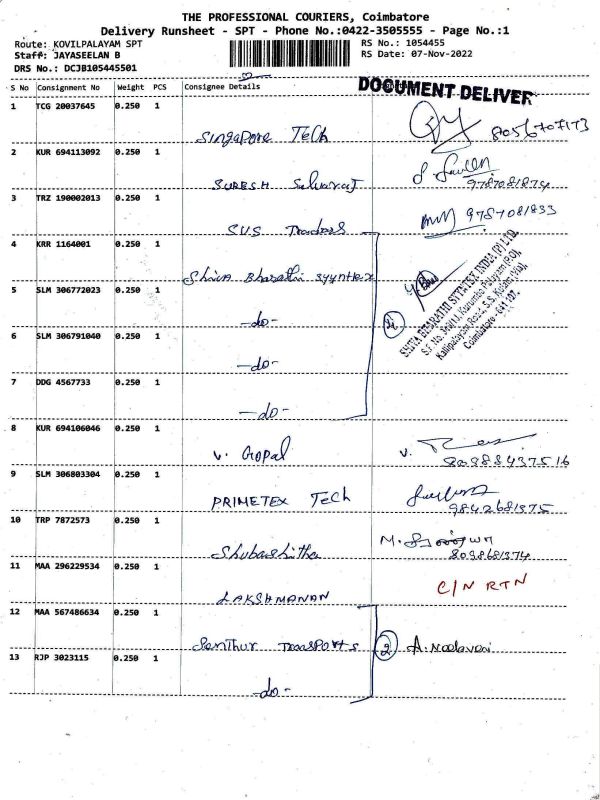 THE PROFESSIONAL COURIERS, Coimbatore
Delivery Runsheet - SPT - Phone No.:0422-3505555 - Page No.:1
Route: KOVILPALAYAM SPT RS No.: 1054455
Staff: JAYASEELAN B RS Date: 07-Nov-2022
DRS No.: DCJB105445501
S No Consignment No Weight PCS Consignee Details
DOCUMENT DELIVER
1 TCG 20037645 0.250 1
Singapore Tech 8056707173
2 KUR 694113092 0.250 1
SURESH Selvaraj 9787081874
3 TRZ 190002013 0.250 1
SVS Traders 9787081833
4 KRR 1164001 0.250 1
Shiva Bharathi syyntex
SHIVA BHARATHI SYNTEX INDIA (P) LTD.
Coimbatore - 641 107.
5 SLM 306772023 0.250 1
-do-
4
6 SLM 306791040 0.250 1
-do-
7 DDG 4567733 0.250 1
-do-
8 KUR 694106046 0.250 1
V. Gopal V.
80988437516
9 SLM 306803304 0.250 1
PRIMETEX TECh 9842681375
10 TRP 7872573 0.250 1
Shubashitha M.
8098681374
11 MAA 296229534 0.250 1
LAKSHMANAN C/N RTN
12 MAA 567486634 0.250 1
Senthur Transports 2 A. Neelaveni
13 RJP 3023115 0.250 1
-do-